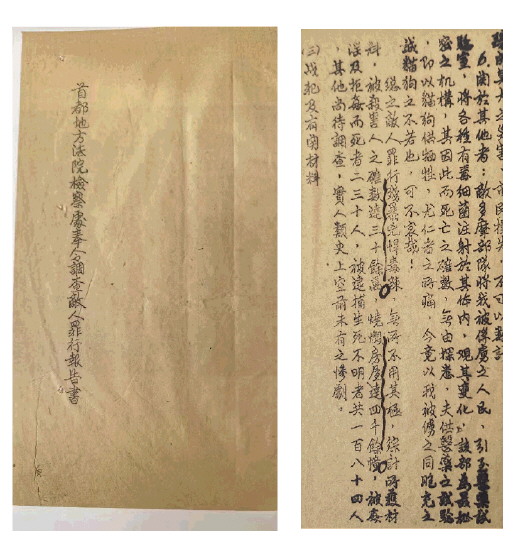 首都地方法院檢察處奉令調查敵人罪行報告書
市民損失,不可以數計
6.關於其他者:敵多摩部隊將我被俘虜之人民,引至醫藥試
驗室,將各種有毒細菌注射於其体內,观其變化。該部為最秘
密之机構,其因此而死亡之確數,無由探悉,夫供醫藥之試驗
,即以貓狗供犧牲,尤仁者之所痛,今竟以我被俘之同胞充之
誠貓狗之不若也,可不哀哉!
總之敵人罪行殘暴兇悍毒辣,無所不用其極,綜計所獲材
料,被殺害人之確數達三十餘萬,燒燬房屋達四千餘幢,被姦
淫及拒姦而死者二三十人,被逮捕生死不明者共一百八十四人
,其他尚待調查,實人類史上空前未有之慘劇。
(三)战犯及有關材料